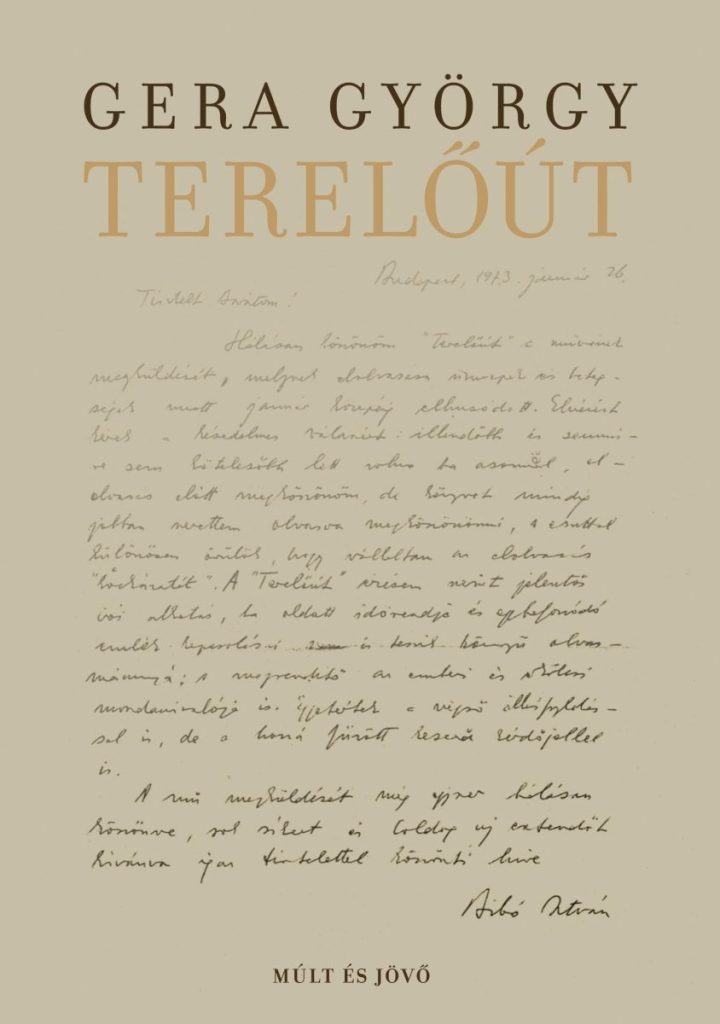 GERA GYÖRGY
TERELŐÚT
Budapest, 1973. január 26.
Tisztelt Barátom!
Hálásan köszönöm "Terelőút" c. művének
megküldését, melynek elolvasása ünnepek és beteg-
ségek miatt január közepéig elhúzódott. Elnézést
kérek a késedelmes válaszért: illendőbb és semmi-
re sem kötelezőbb lett volna ha azonnal, el-
olvasás előtt megköszönöm, de könyvet mindig
jobban szerettem olvasva megköszönni, s ezúttal
különösen örülök, hogy vállaltam az elolvasás
"kockázatát". A "Terelőút" szerint jelentős
írói alkotás, ha oldott időrendje és egybefonódó
emlék kapcsolásai és teszik könnyű olvas-
mánnyá; s megrendítő az emberi és erkölcsi
mondanivalója is. Egyetértek a végső állásfoglalás-
sal is, de a hozzá fűzött keserű kérdőjellel
is.
A mű megküldését még egyszer hálásan
köszönve, sok sikert és boldog új esztendőt
kívánva igaz tisztelettel köszönti híve
Bibó István
MÚLT ÉS JÖVŐ